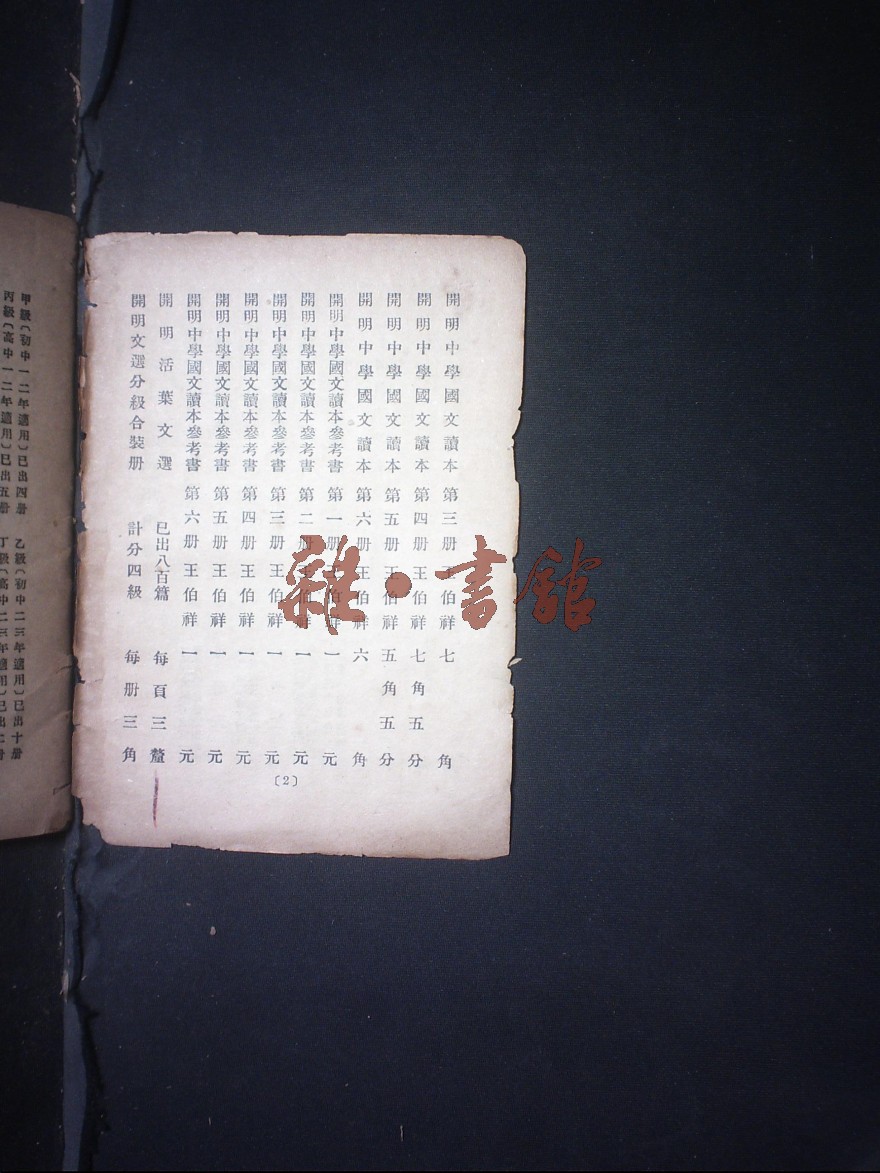 開明中學國文讀本 第三册 王伯祥 七角
開明中學國文讀本 第四册 王伯祥 七角五分
開明中學國文讀本 第五册 王伯祥 五角五分
開明中學國文讀本 第六册 王伯祥 六角
開明中學國文讀本參考書 第一册 王伯祥 一元
開明中學國文讀本參考書 第二册 王伯祥 一元
開明中學國文讀本參考書 第三册 王伯祥 一元
開明中學國文讀本參考書 第四册 王伯祥 一元
開明中學國文讀本參考書 第五册 王伯祥 一元
開明中學國文讀本參考書 第六册 王伯祥 一元
開明活葉文選 已出八百篇 每頁三釐
開明文選分級合裝册 計分四級 每册三角
〔2〕
甲級〔初中一二年適用〕已出四册 乙級〔初中二三年適用〕已出十册
丙級〔高中一二年適用〕已出五册 丁級〔高中二三年適用〕已出
雜·書館